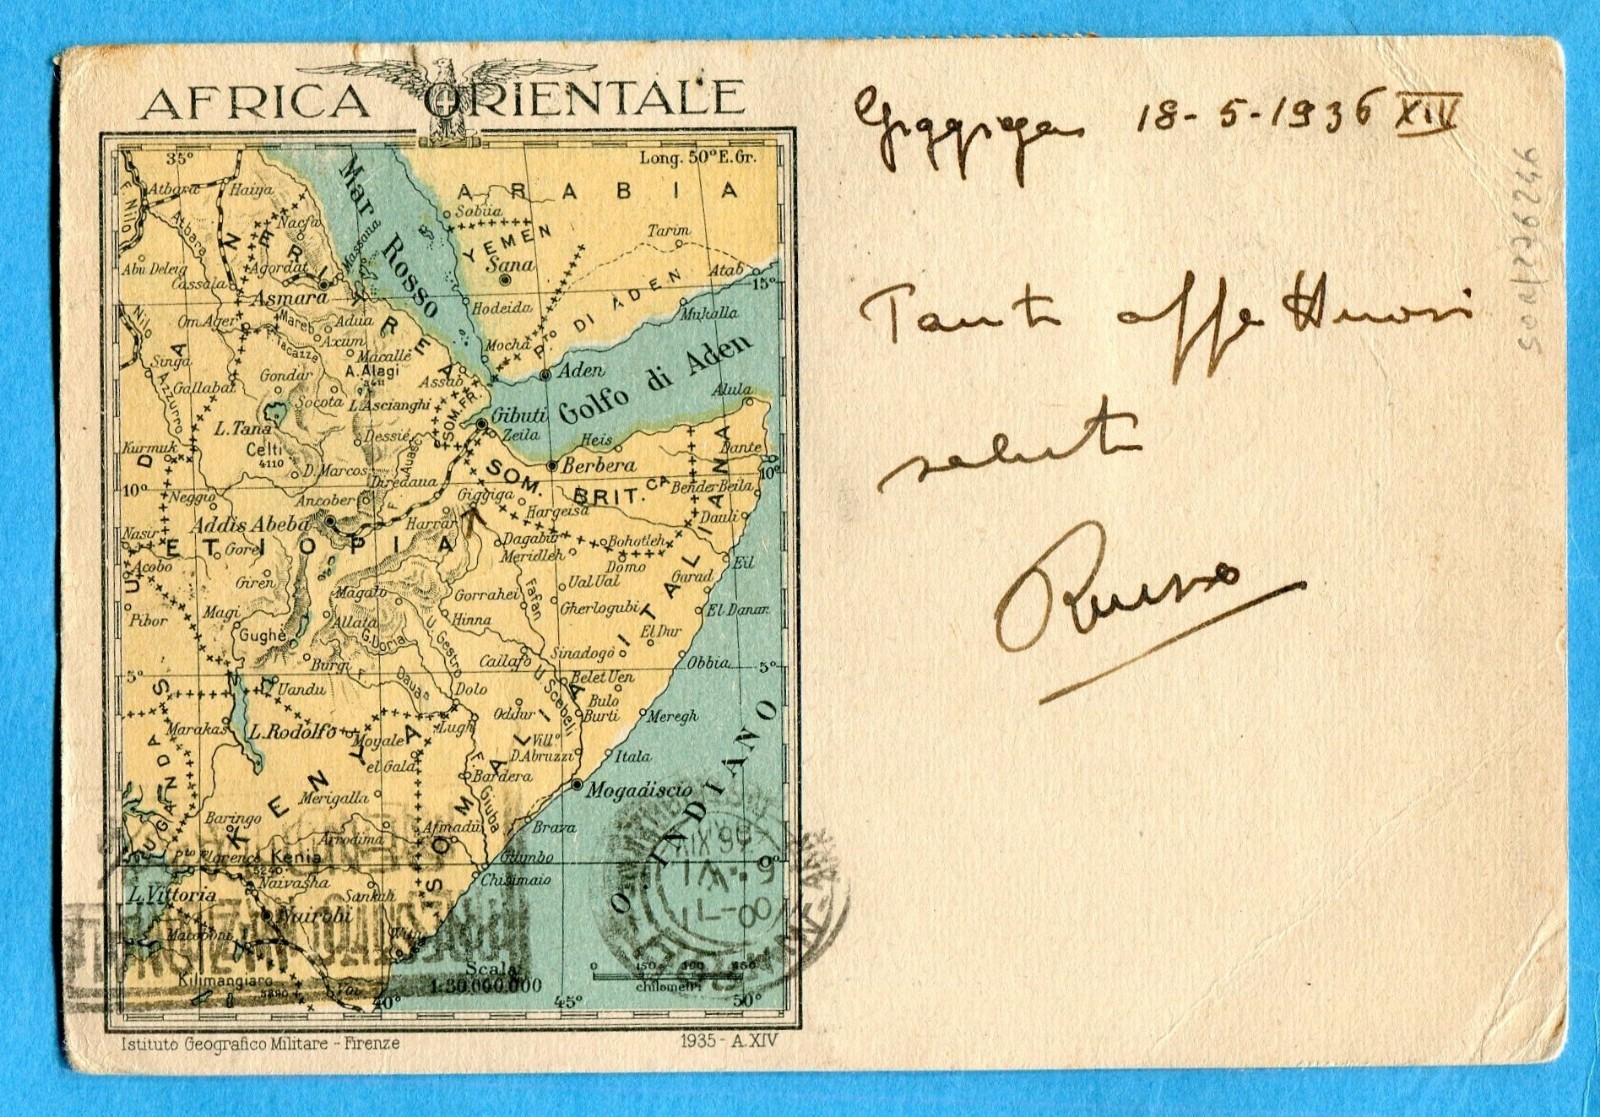 AFRICA ORIENTALE
35°
Long. 50° E. Gr.
Mar Rosso
ARABIA
Atbara
Haiya
E. Nilo
Nacfa
Sobiia
YEMEN
Tarim
Sana
Abu Deleig
Cassala
Agordat
Massaua
ERITREA
Asmara
Hodeida
P. DI ADEN
Atab
15°
Mukalla
Om Ager
Mareb
Adua
Axum
Tacazzè
Macallè
Mocha
Nilo Azzurro
Singa
Gallabat
Gondar
A. Alagi
Assab
Aden
Golfo di Aden
Alula
Socota
L. Ascianghi
SOM. FR.
Gibuti
Zeila
L. Tana
Celti
4110
Dessiè
Heis
Dante
Kurmuk
D. Marcos
Auasc
Berbera
10°
10°
Diredaua
SOM. BRIT.CA
Bender Beila
Neggio
Ancober
Giggiga
Hargeisa
Dauli
Addis Abeba
Harrar
Nasir
ETIOPIA
Gore
Dagabur
Bohotleh
Meridleh
Domo
Eil
Acobo
Giren
Magalo
Gorrahei
Fafan
Ual Ual
Garad
Pibor
Magi
Allata
Hinna
Gherlogubi
El Danar
Gughè
G. Loria
U. Gestro
El Dur
Burgi
Cailafo
Sinadogò
Obbia
5°
5°
Uandu
F. Daua
Dolo
U. Scebeli
Belet Uen
Bulo Burti
Marakas
L. Rodolfo
Moyale
Lugh
Oddur
Meregh
Vill.º D. Abruzzi
Itala
UGANDA
el Gala
Bardera
SOMALIA ITALIANA
Mogadiscio
O. INDIANO
KENYA
Merigalla
F. Giuba
Baringo
Afmadù
Brava
Pto Florence
Kenia
5240
Giumbo
0°
Naivasha
Sankuh
Chisimaio
L. Vittoria
Nairobi
Kilimangiaro
5890
Voi
Scala 1:30.000.000
chilometri
40°
45°
50°
Istituto Geografico Militare - Firenze
1935 - A. XIV
Giggiga 18-5-1936 XIV
Tanti affettuosi
saluti
Russo